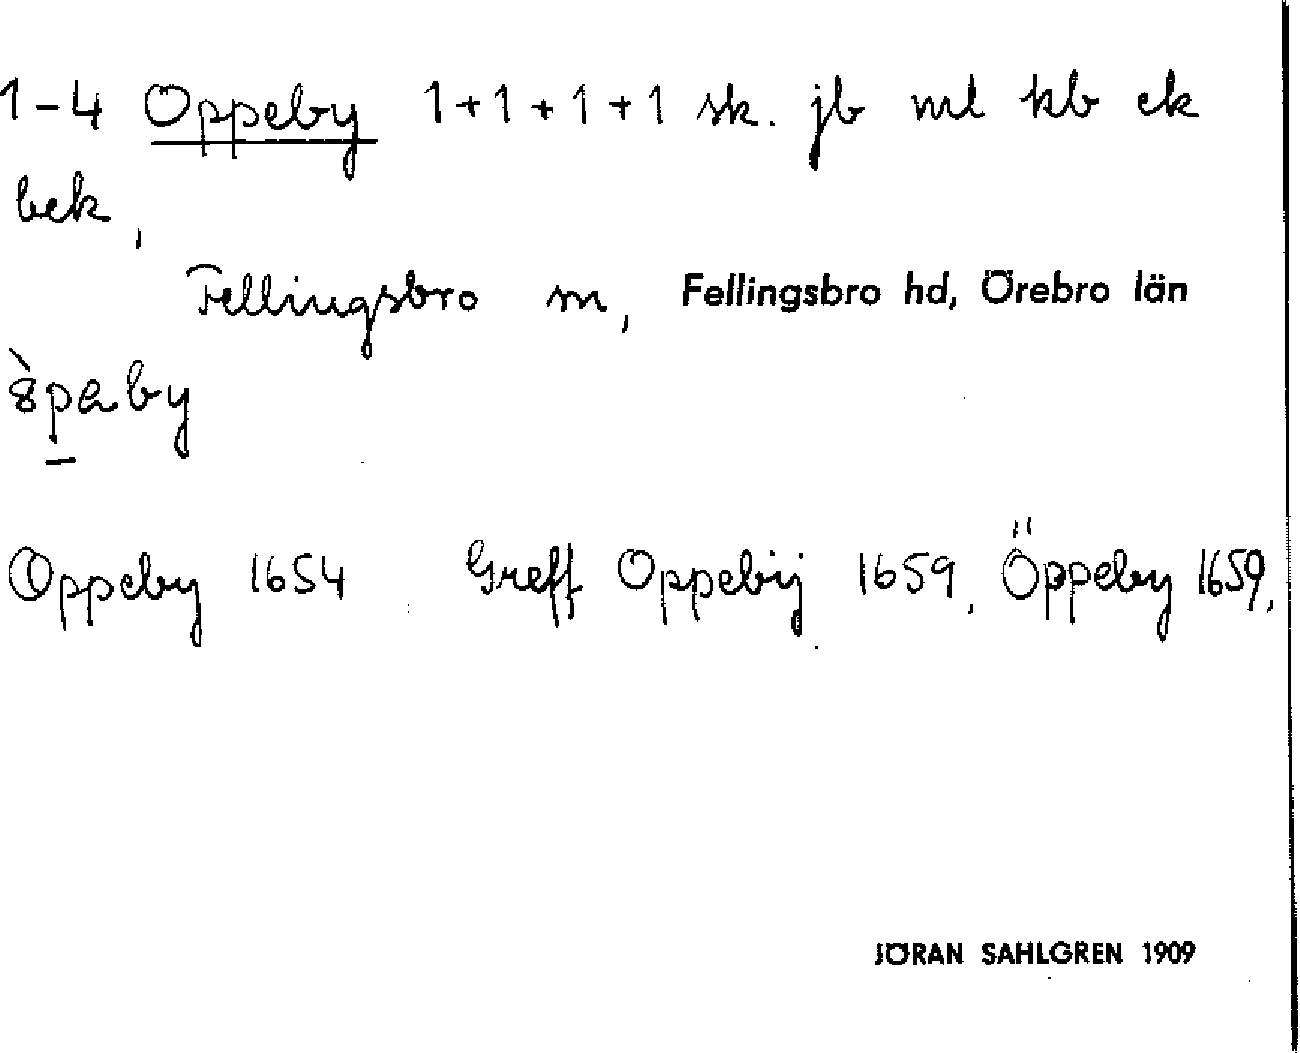 1-4 Oppeby 1+1+1+1 sk. jb ml kb ek
bek,
Fellingsbro sn, Fellingsbro hd, Örebro län
Oppeby 1654 Greff Oppebÿ 1659, Öppeby 1659,
JÖRAN SAHLGREN 1909